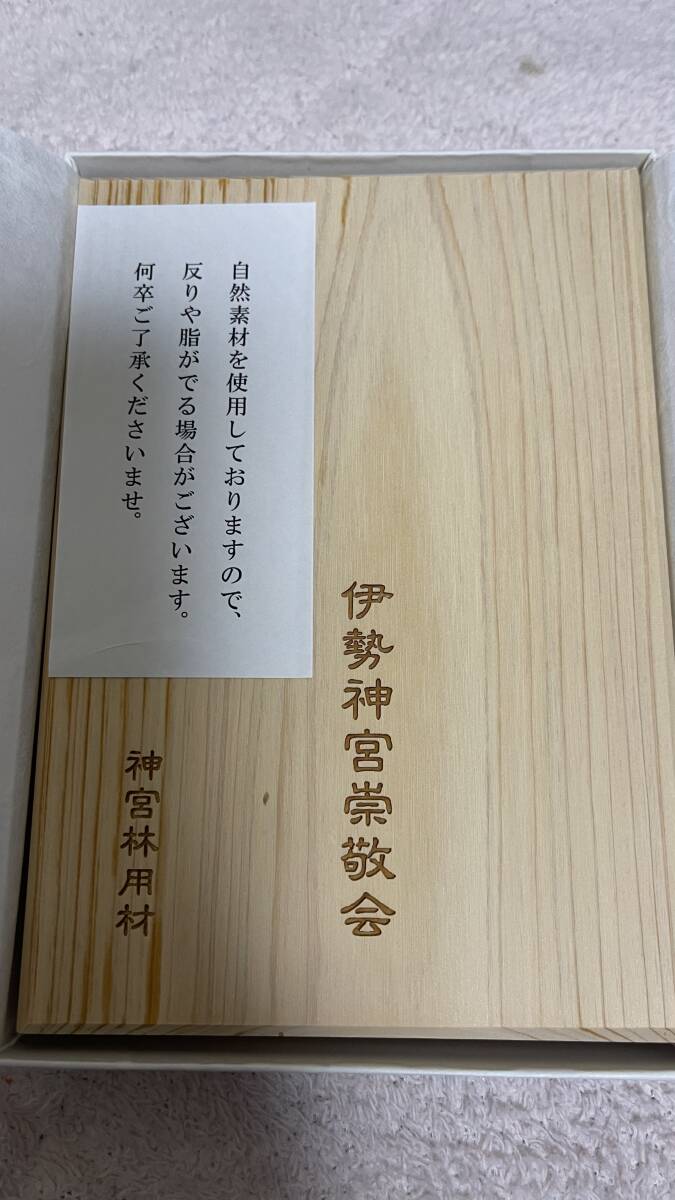 自然素材を使用しておりますので、
反りや脂がでる場合がございます。
何卒ご了承くださいませ。
伊勢神宮崇敬会
神宮林用材